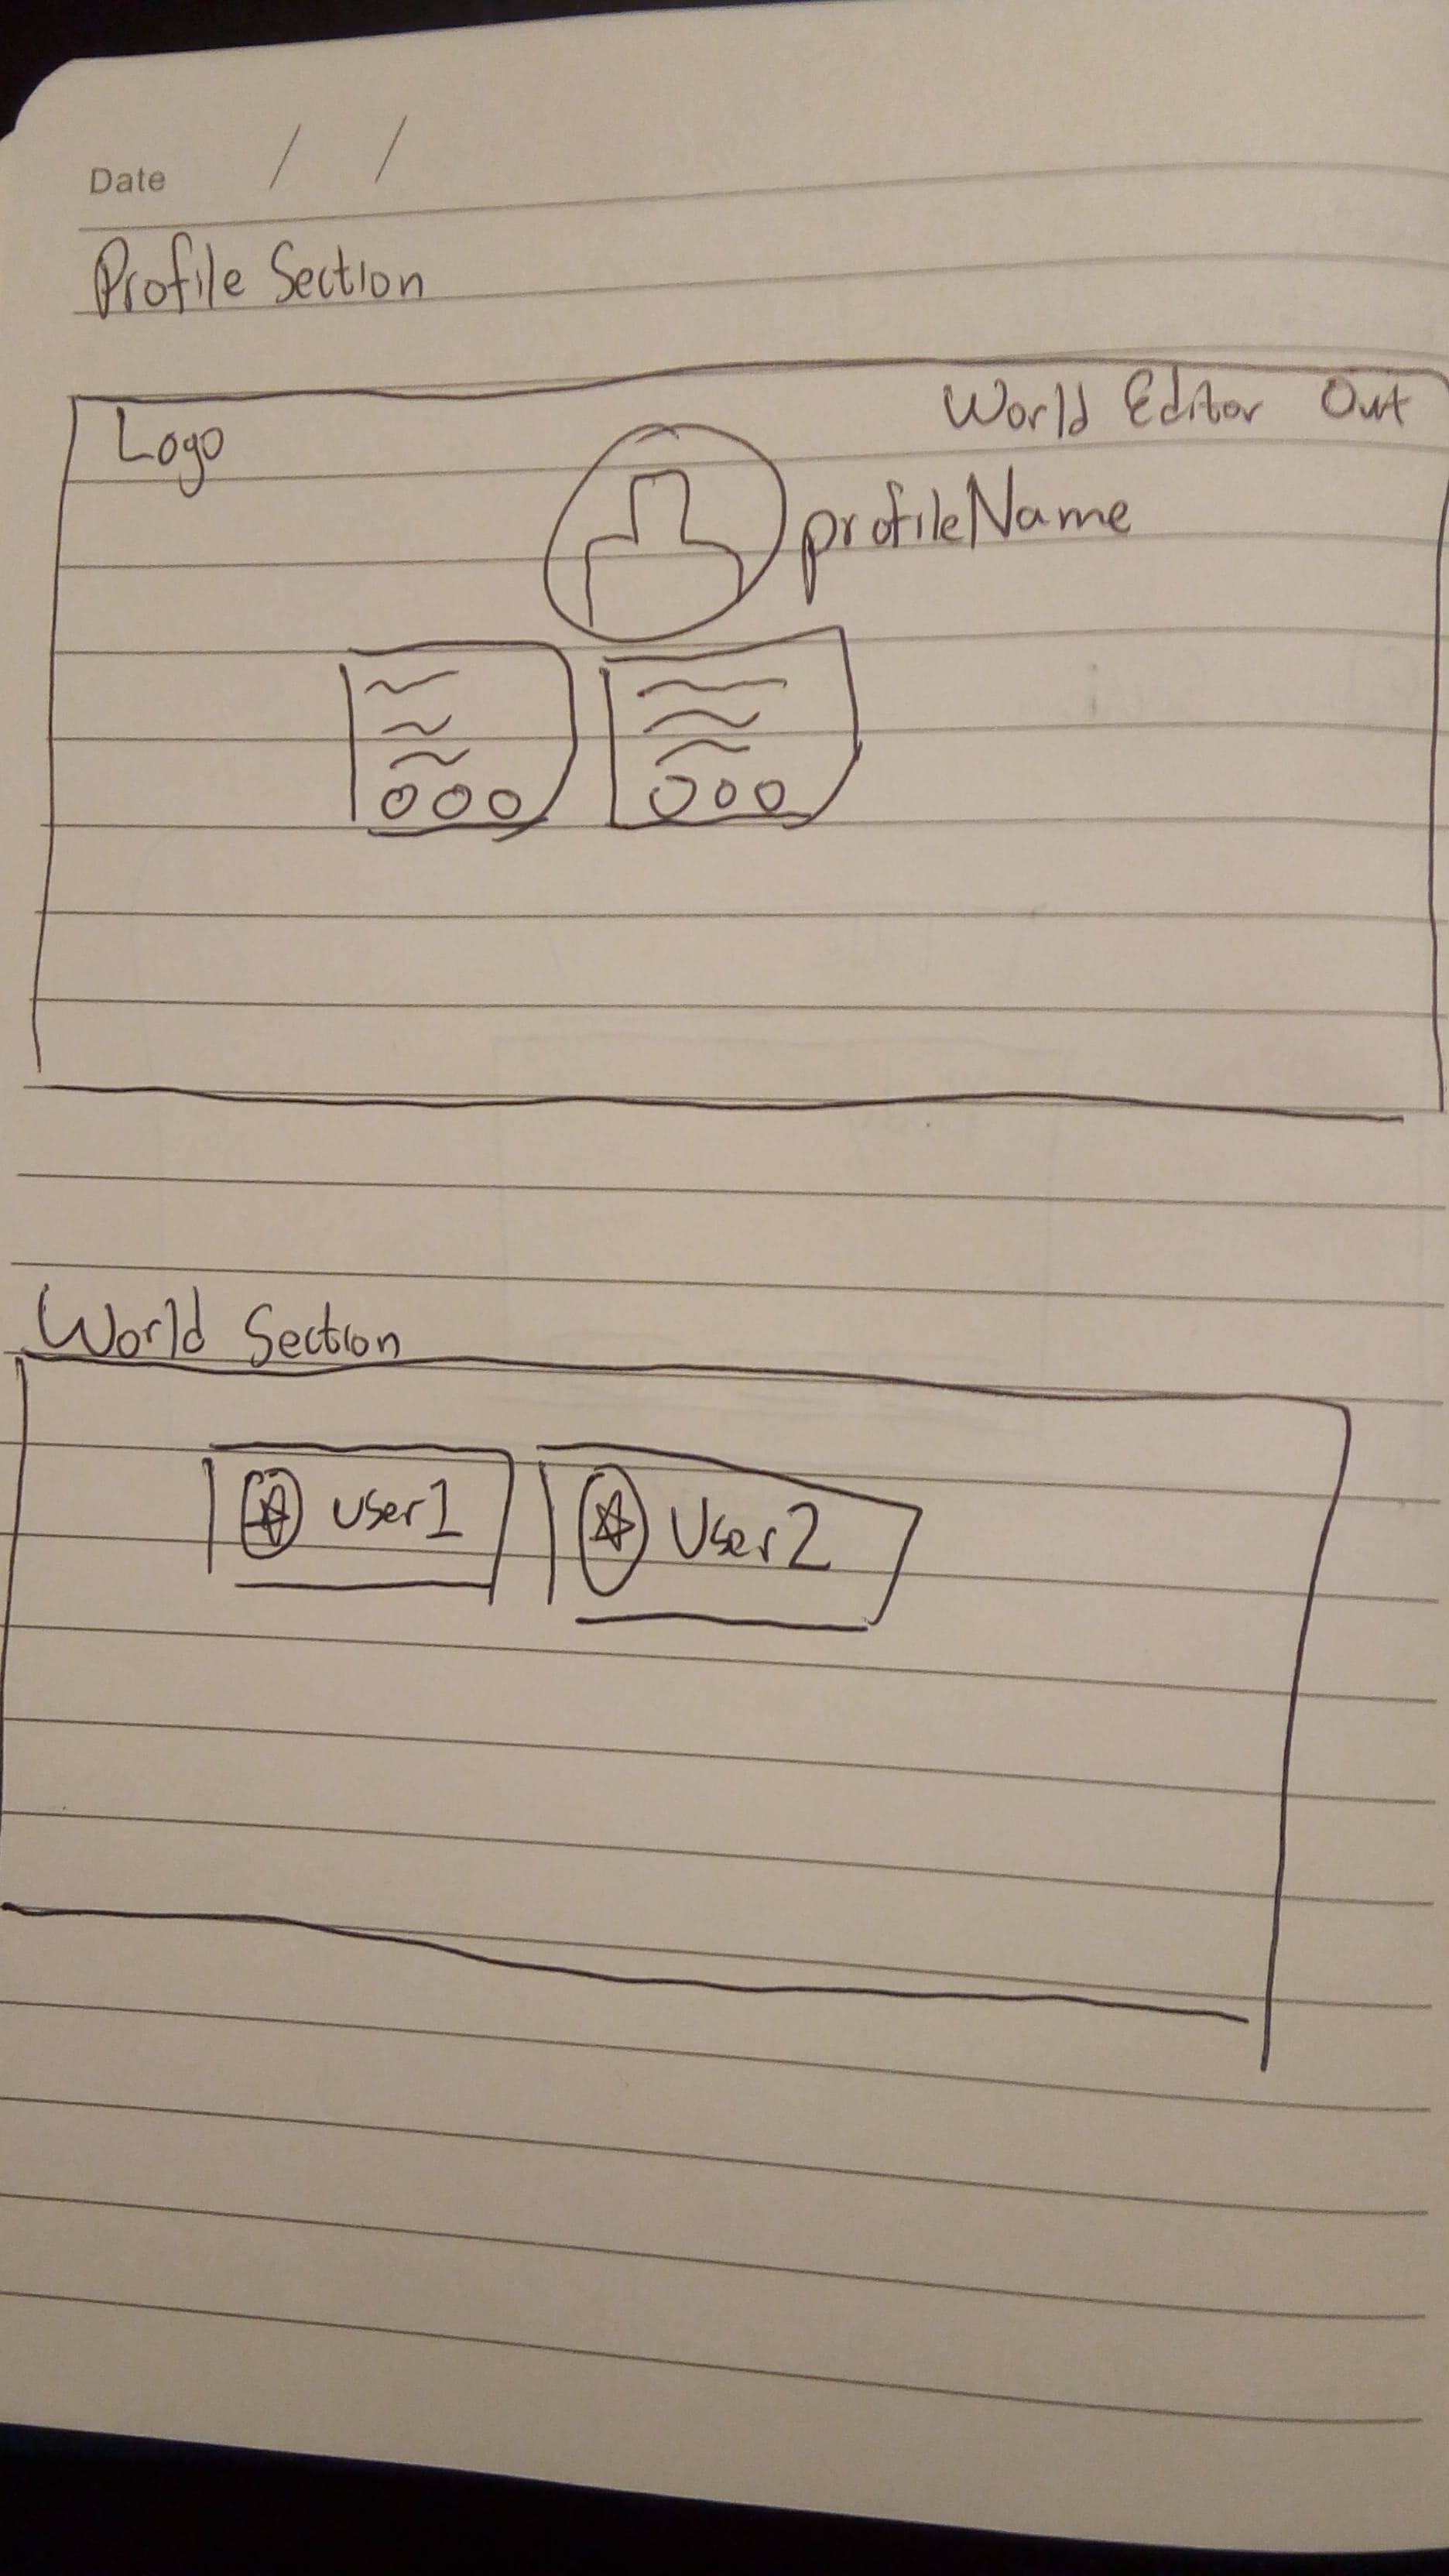 Date / /
Profile Section
Logo World Editor Out
profileName
World Section
user1 User2